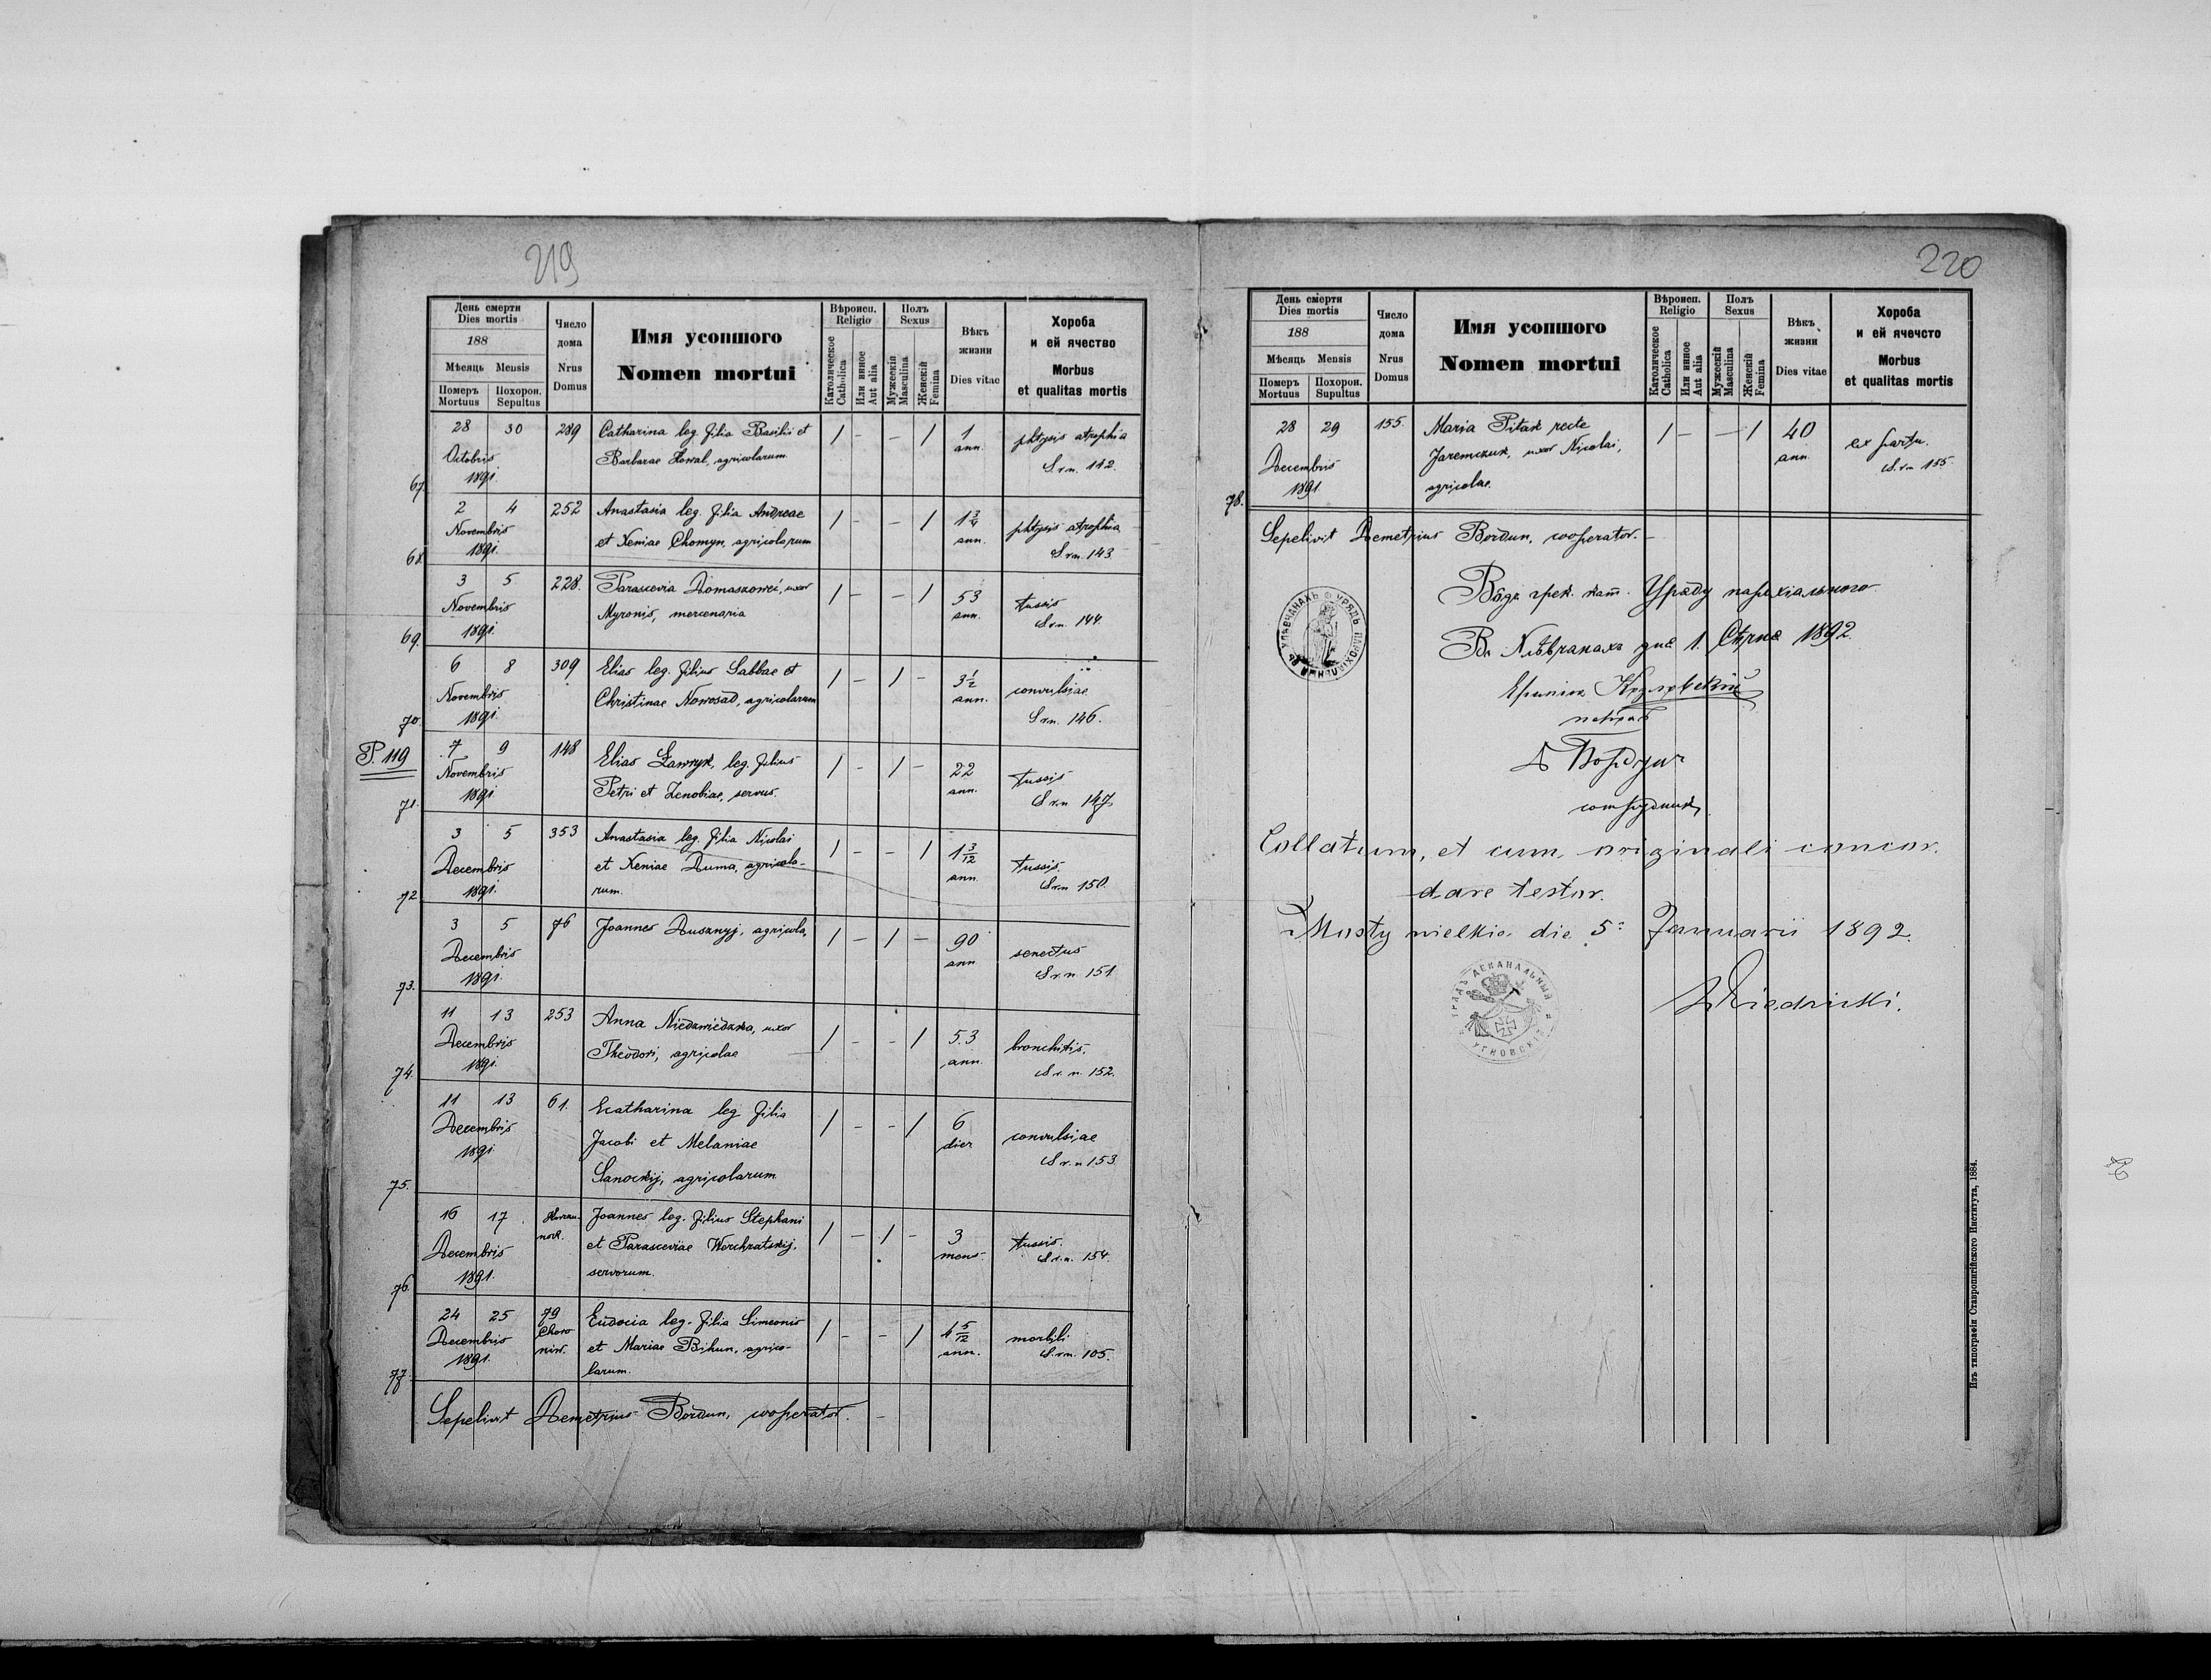 219
День смерти
Dies mortis
188
Мѣсяць Mensis
Померъ Похорон.
Mortuus Sepultus
Число
дома
Nrus
Domus
Имя усопшого
Nomen mortui
Вѣроисп.
Religio
Католическое
Catholica
Или инное
Aut alia
Полъ
Sexus
Мужескій
Masculina
Женскій
Femina
Вѣкъ
жизни
Dies vitae
Хороба
и ей ячество
Morbus
et qualitas mortis
28 30 289 Catharina leg. filia Basilii et 1 - - 1 1 phtysis atrophia
Octobris Barbarae Kowal, agricolarum ann. S. r. n. 142.
67. 1891.
2 4 252 Anastasia leg. filia Andreae 1 - - 1 1 3/4 phtysis atrophia
Novembris et Xeniae Chomyn, agricolarum ann. S. r. n. 143
68. 1891.
3 5 228. Parascevia Domaszowei, uxor 1 - - 1 53 tussis
Novembris Myronis, mercenaria ann. S. r. n. 144.
69. 1891.
6 8 309 Elias leg. filius Sabbae et 1 - 1 - 3 1/2 convulsiae
Novembris Christinae Nowosad, agricolarum ann. S. r. n. 146.
70. 1891.
P. 119
7 9 148 Elias Ławryk, leg. filius 1 - 1 - 22 tussis
Novembris Petri et Zenobiae, servus. ann. S. r. n. 147
71. 1891
3 5 353 Anastasia leg. filia Nicolai 1 - - 1 1 3/12 tussis.
Decembris et Xeniae Duma, agricola- ann. S. r. n. 150.
72. 1891. rum.
3 5 76 Joannes Dusznyj, agricola, 1 - 1 - 90 senectus
Decembris ann S. r. n. 151
73. 1891.
11 13 253 Anna Niedzwiedzka, uxor 1 - - 1 53 bronchitis.
Decembris Theodori, agricolae ann. S. r. n. 152.
74. 1891.
11 13 61. Ecatharina leg filia 1 - - 1 6 convulsiae
Decembris Jacobi et Melaniae dier S. r. n 153.
75. 1891 Sanockij, agricolarum
16 17 Joannes leg. filius Stephani 1 - 1 - 3 tussis.
Decembris et Parasceviae Werchratskij, mens. S. r. n. 154.
76. 1891. servorum.
24 25 79 Eudocia leg. filia Simeonis 1 - - 1 4 5/12 morbili
Decembris Choro et Mariae Bihun, agrico- ann. S. r. n. 105.
77. 1891. niw. larum.
Sepelivit Demetrius Bordun, cooperator.
220
День смерти
Dies mortis
188
Мѣсяць Mensis
Померъ Похорон.
Mortuus Supultus
Число
дома
Nrus
Domus
Имя усопшого
Nomen mortui
Вѣроисп.
Religio
Католическое
Catholica
Или инное
Aut alia
Полъ
Sexus
Мужескій
Masculina
Женскій
Femina
Вѣкъ
жизни
Dies vitae
Хороба
и ей ячечсто
Morbus
et qualitas mortis
28 29 155. Maria Pitak recte 1 - - 1 40 ex partu.
Decembris Jaremczuk, uxor Nicolai, ann. S. r. n 155.
78. 1891. agricolae.
Sepelivit Demetrius Bordun, cooperator.
Вôдъ грек. кат. Уряду парохіального
Въ дня 1. Сѣчня 1892.
Д Бордун
сотрудник
Collatum, et cum originali concor.
dare testor.
Mosty wielkie die 5. Januarii 1892.
Изъ типографіи Ставропигійского Института, 1884.